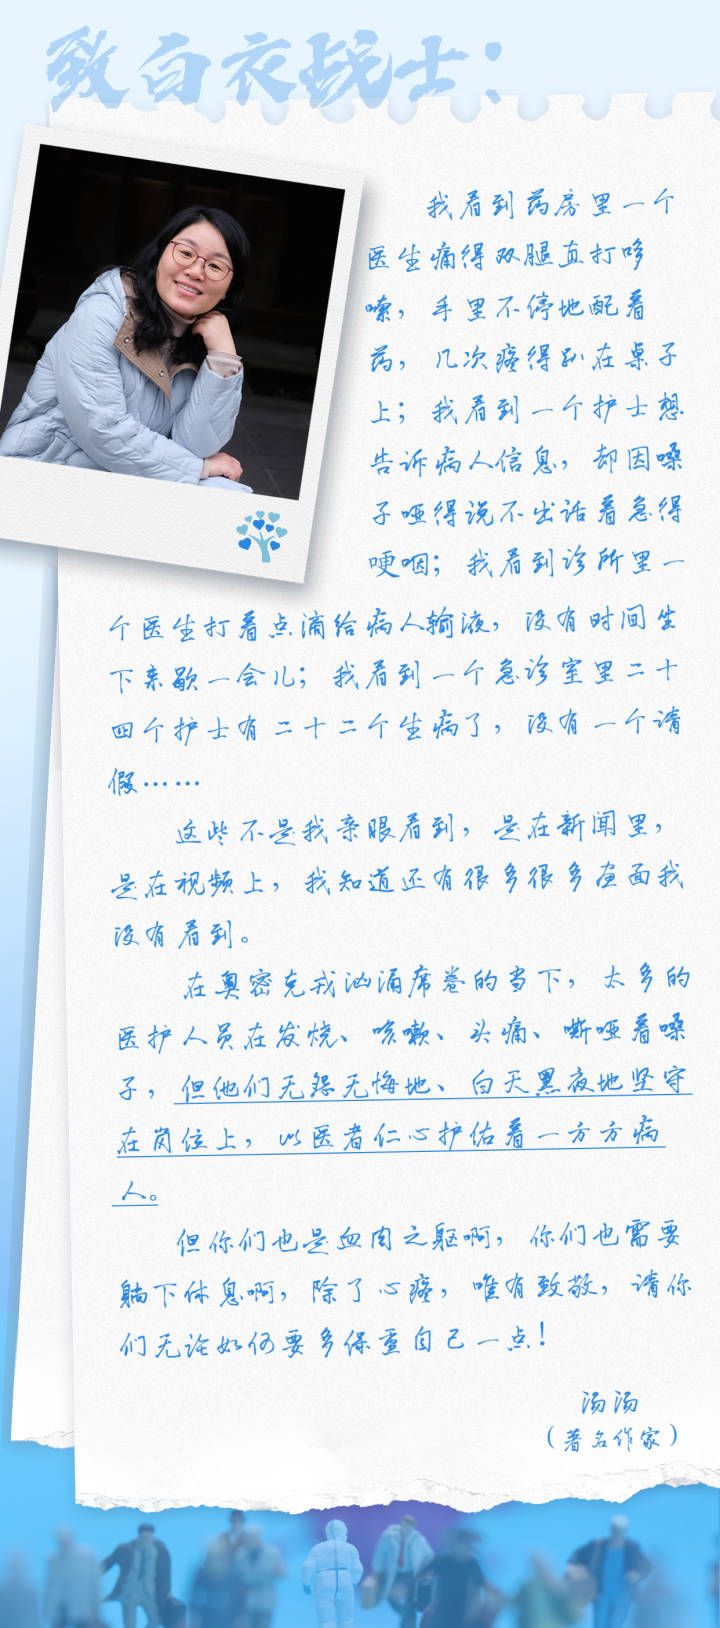 致白衣战士：
我看到药房里一个
医生痛得双腿直打哆
嗦，手里不停地配着
药，几次疼得趴在桌子
上；我看到一个护士想
告诉病人信息，却因嗓
子哑得说不出话着急得
哽咽；我看到诊所里一
个医生打着点滴给病人输液，没有时间坐
下来歇一会儿；我看到一个急诊室里二十
四个护士有二十二个生病了，没有一个请
假……
这些不是我亲眼看到，是在新闻里，
是在视频上，我知道还有很多很多画面我
没有看到。
在奥密克戎汹涌席卷的当下，太多的
医护人员在发烧、咳嗽、头痛、嘶哑着嗓
子，但他们无怨无悔地、白天黑夜地坚守
在岗位上，以医者仁心护佑着一方方病
人。
但你们也是血肉之躯啊，你们也需要
躺下休息啊，除了心疼，唯有致敬，请你
们无论如何要多保重自己一点！
汤汤
（著名作家）